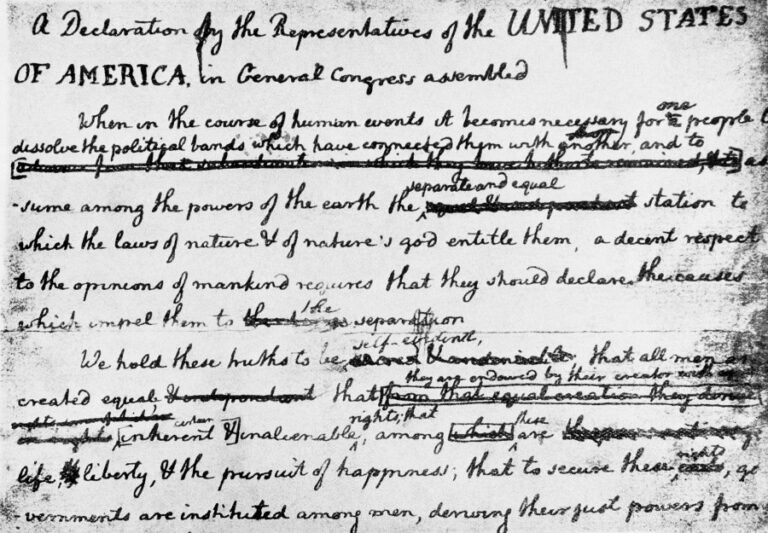 A Declaration by the Representatives of the UNITED STATES
OF AMERICA, in General Congress assembled
When in the course of human events it becomes necessary for one people
dissolve the political bands which have connected them with another, and to
advance from that subordination in which they have hitherto remained, & to as
separate and equal
-sume among the powers of the earth the equal & independant station to
which the laws of nature & of nature's god entitle them, a decent respect
to the opinions of mankind requires that they should declare the causes
the
which impel them to separation
self-evident,
We hold these truths to be sacred & undeniable, that all men
they are endowed by their creator with
created equal & independant that from that equal creation they derive
rights; that
certain
these
inherent & inalienable, among which are
rights
life, liberty, & the pursuit of happiness; that to secure these, go
-vernments are instituted among men, deriving their just powers from